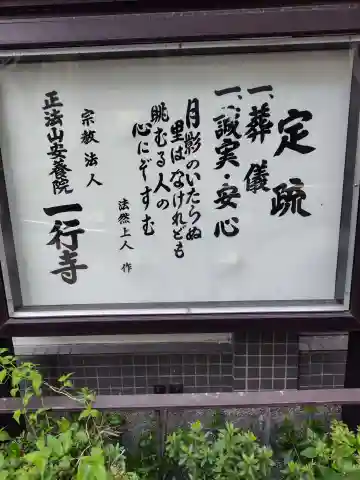 定疏
一、葬儀
一、誠実・安心
月影のいたらぬ
里はなけれども
眺むる人の
心にぞすむ
法然上人 作
宗教法人
正法山安養院
一行寺